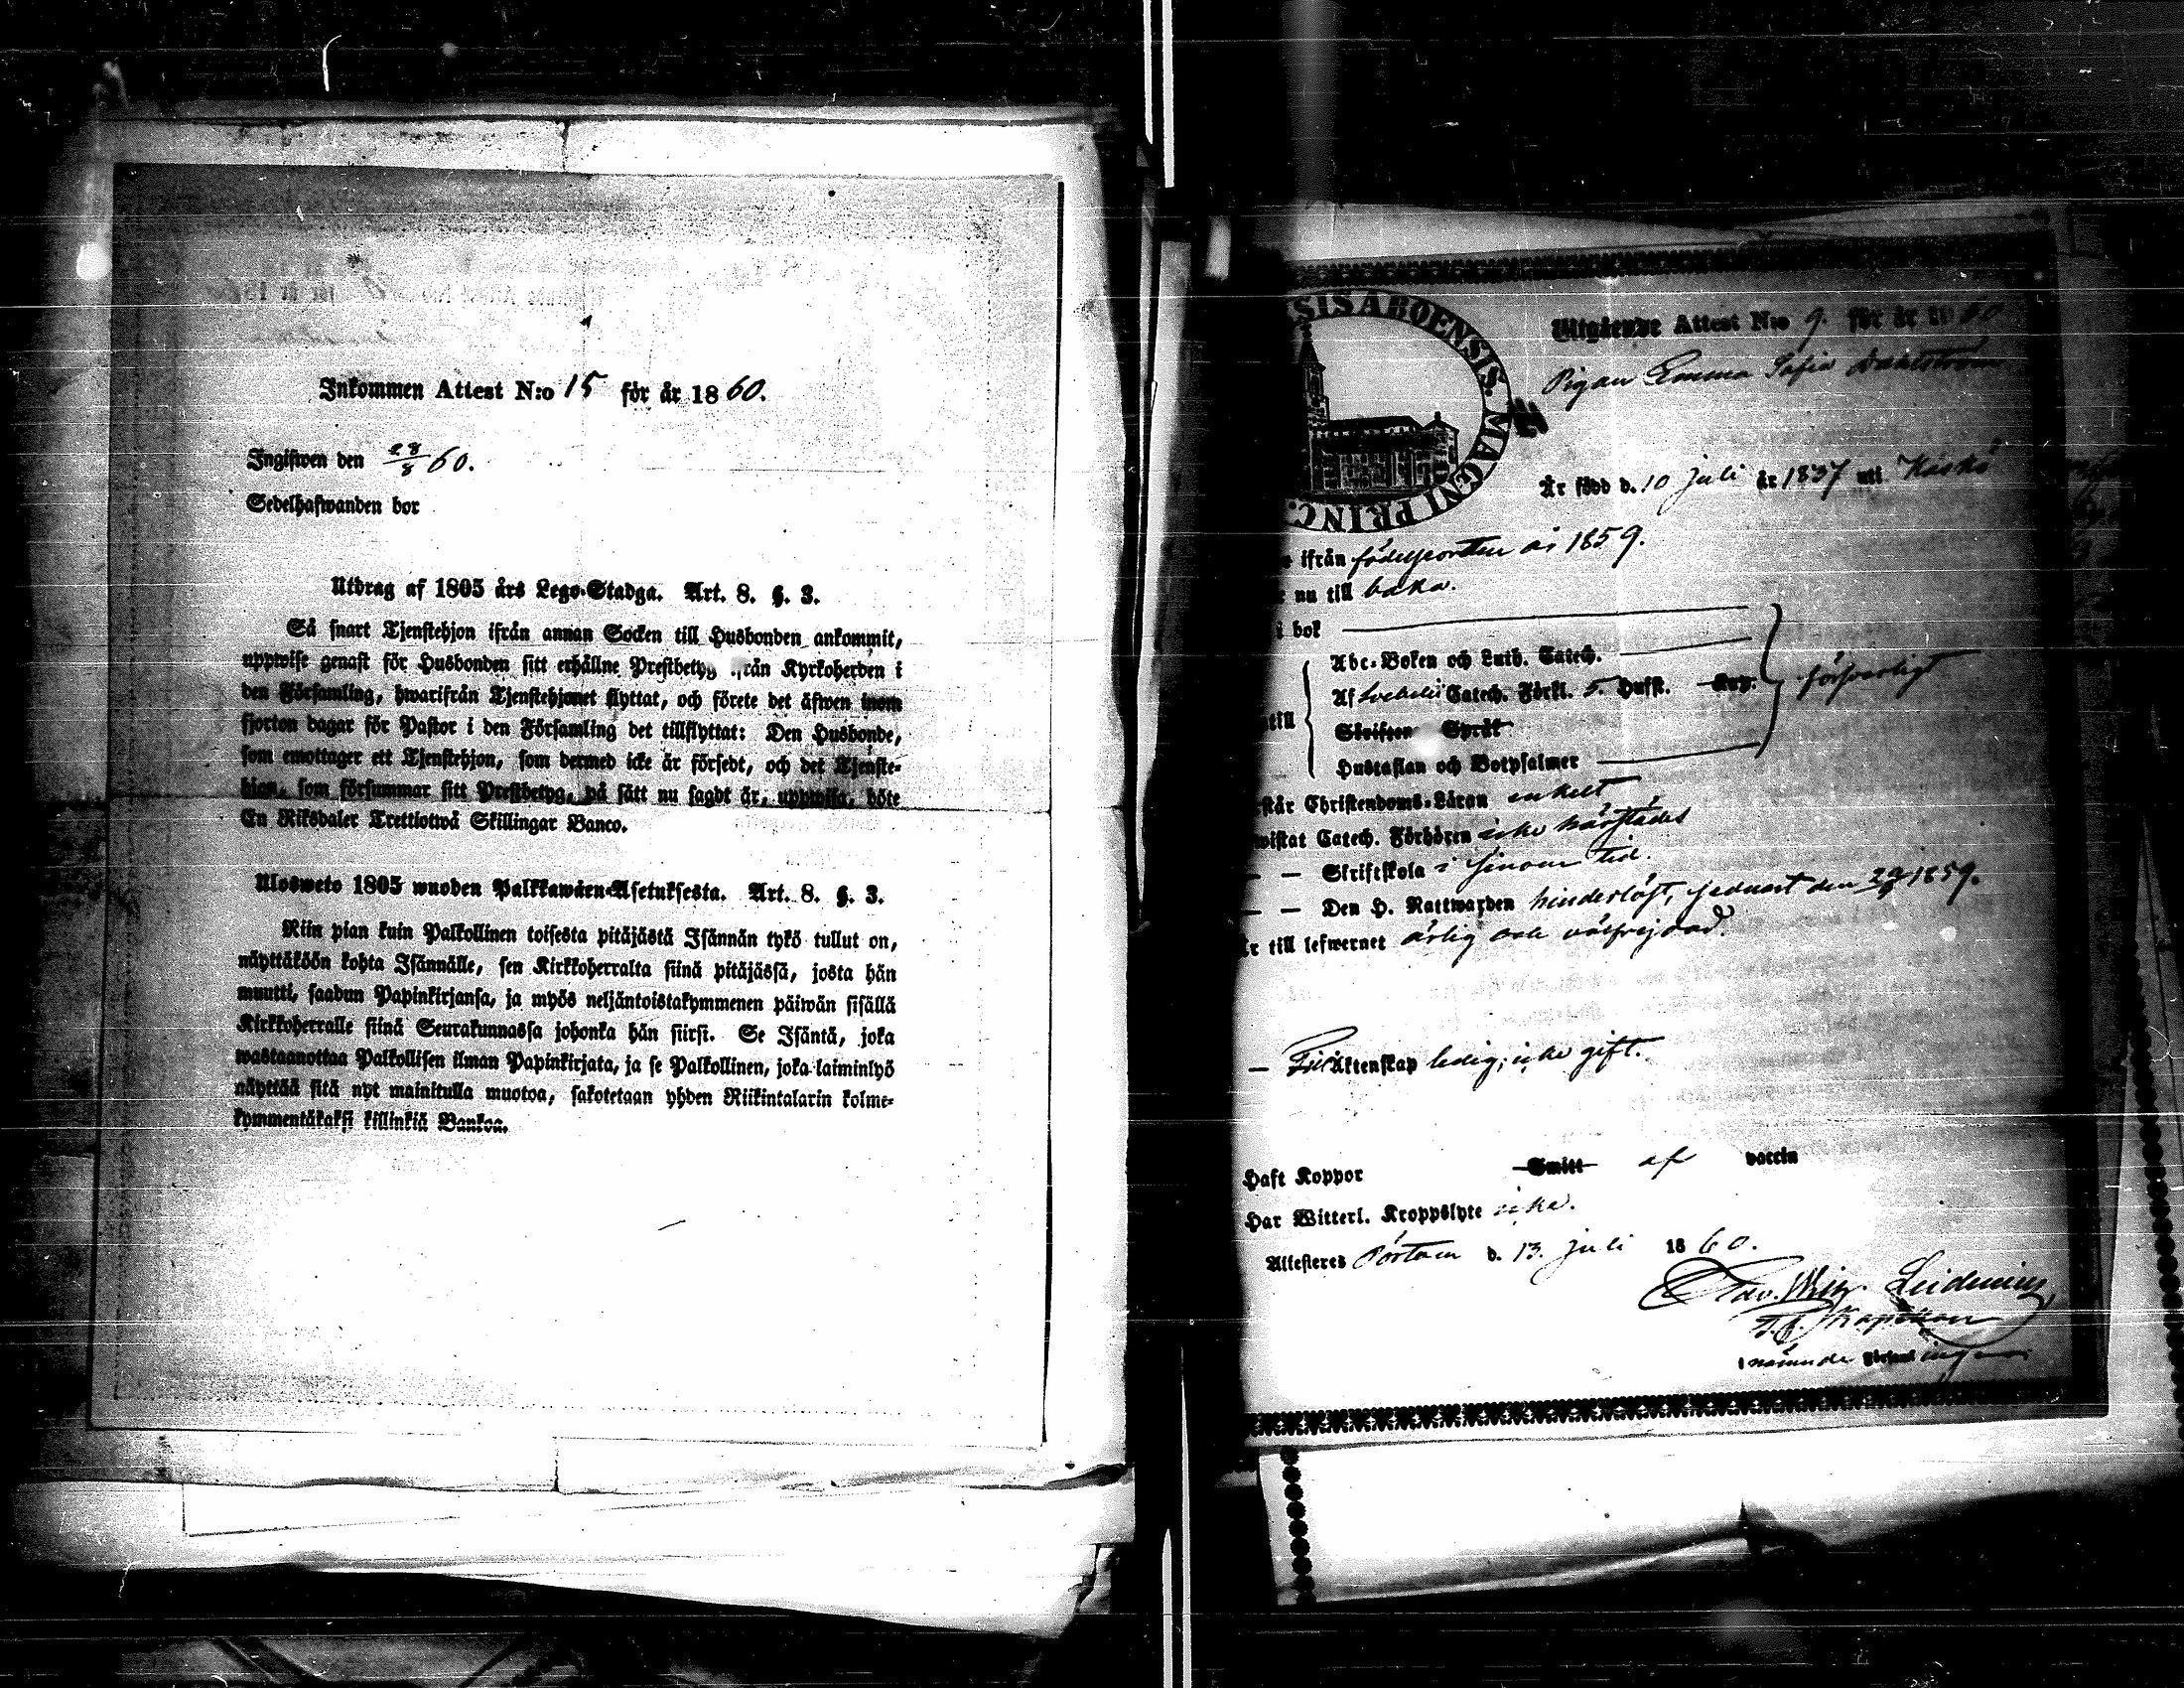 Inkommen Attest N:o 15 för år 1860.
Ingifwen den 28/8 60.
Sedelhafwanden bor
Utdrag af 1805 års Lego-Stadga. Art. 8. §. 3.
Så snart Tjenstehjon ifrån annan Socken till Husbonden ankommit,
uppwise genast för Husbonden sitt erhållne Prestbetyg från Kyrkoherden i
den Församling, hwarifrån Tjenstehjonet flyttat, och förete det äfwen inom
fjorton dagar för Pastor i den Församling det tillflyttat: Den Husbonde,
som emottager ett Tjenstehjon, som dermed icke är försedt, och det Tjenste-
hjon, som försummar sitt Prestbetyg, på sätt nu sagdt är, uppwisa, böte
En Riksdaler Trettiotwå Skillingar Banco.
Ulosweto 1805 wuoden Palkkawäen-Asetuksesta. Art. 8. §. 3.
Niin pian kuin Palkollinen toisesta pitäjästä Isännän tykö tullut on,
näyttäköön kohta Isännälle, sen Kirkkoherralta siinä pitäjässä, josta hän
muutti, saadun Papinkirjansa, ja myös neljäntoistakymmenen päiwän sisällä
Kirkkoherralle siinä Seurakunnassa johonka hän siirsi. Se Isäntä, joka
wastaanottaa Palkollisen ilman Papinkirjata, ja se Palkollinen, joka laiminlyö
näyttää sitä nyt mainitulla muotoa, sakotetaan yhden Riikintalarin kolme-
kymmentäkaksi killinkiä Bankoa.
SIS ABOENSIS. MAGNI PRINC.
Utgående Attest N:o 9. för år 1860
Pigan Emma Sofia Dahlström
Är född d. 10 Juli år 1837 uti Kaskö
ifrån födelseorten år 1859.
nu till baka.
i bok
Abc-Boken och Luth. Catech.
Af Svebelii Catech. Förkl. 5. Hufst. försvarligt
till
Skriftens Språk
Hustaflan och Botpsalmer
står Christendoms-Läran enkelt
wistat Catech. Förhören icke härstädes
— — Skriftskola i sinom tid.
— — Den H. Nattwarden hinderlöst, senast den 1859.
är till lefwernet ärlig och välfrejdad.
— Till Äktenskap ledig; icke gift.
Haft Koppor Smitt af vaccin
Har Witterl. Kroppslyte icke.
Attesteres Pörtom d. 13. Juli 1860.
Leidenius,
T.f. Kapellan
i nämnde Församlingen